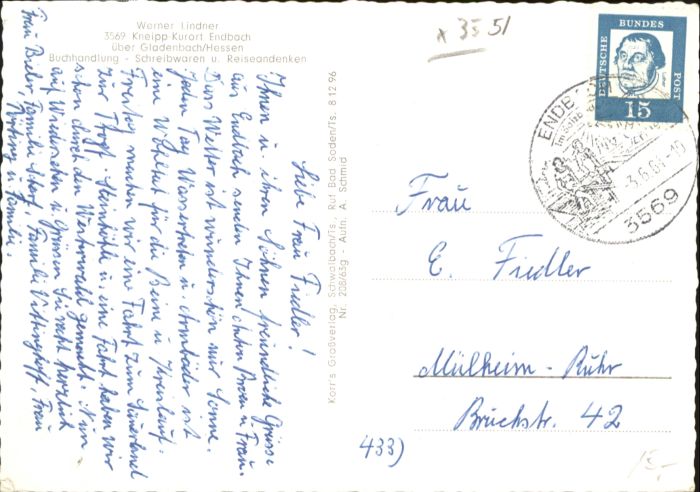 Werner Lindner
3569 Kneipp-Kurort Endbach
über Gladenbach/Hessen
Buchhandlung - Schreibwaren u. Reiseandenken
Liebe Frau Fiedler!
Ihnen u. ihren Söhnen freundliche Grüsse
aus Endbach senden Ihnen u. Frau.
Das Wetter ist wunderschön nur Sonne.
Jeden Tag Wassertreten u. Armbäder ist
eine Wohltat für die Beine u. Kreislauf.
Freitag machten wir eine Fahrt zum Sauerland
zur Steinhöhle u. eine Fahrt haben wir
schon durch den Westerwald gemacht. Nun
auf Wiedersehen u. Grüssen Sie recht herzlich
Frau Familie Familie Frau
u. Familie.
Korr's Großverlag, Schwalbach/Ts. Ruf Bad Soden/Ts. 8 12 96
Nr. 208/63g - Aufn. A. Schmid
* 35 51
DEUTSCHE
BUNDES
POST
15
ENDB
-3.6.65-10
3569
Frau
E. Fiedler
Mülheim-Ruhr
Bruchstr. 42
433)
15,-